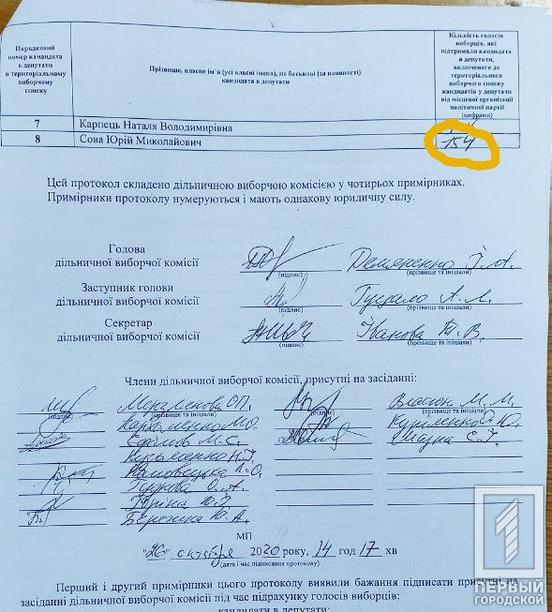 Порядковий
номер кандидата
в депутати
в територіальному
виборчому
списку
Прізвище, власне ім'я (усі власні імена), по батькові (за наявності)
кандидата в депутати
Кількість голосів
виборців, які
підтримали кандидата
в депутати,
включеного до
територіального
виборчого списку
кандидатів у депутати
від місцевої організації
політичної партії
(цифрами)
7 Карпець Наталя Володимирівна
8 Сова Юрій Миколайович 154
Цей протокол складено дільничною виборчою комісією у чотирьох примірниках.
Примірники протоколу нумеруються і мають однакову юридичну силу.
Голова
дільничної виборчої комісії
(підпис) (прізвище та ініціали)
Заступник голови
дільничної виборчої комісії Гуцало А. Л.
(підпис) (прізвище та ініціали)
Секретар
дільничної виборчої комісії Іванова Т. В.
(підпис) (прізвище та ініціали)
Члени дільничної виборчої комісії, присутні на засіданні:
Власюк М. М.
(підпис) (прізвище та ініціали) (підпис) (прізвище та ініціали)
Пархоменко М.О.
Єфімов М.С.
Кузьменко Н.І.
Юріна Ю.
Бережна Ю. А.
МП
"26" октября 2020 року, 14 год 17 хв
(дата і час підписання протоколу)
Перший і другий примірники цього протоколу виявили бажання підписати присутні на
засіданні дільничної виборчої комісії під час підрахунку голосів виборців:
кандидати в депутати:
1
ПЕРВЫЙ
ГОРОДСКОЙ